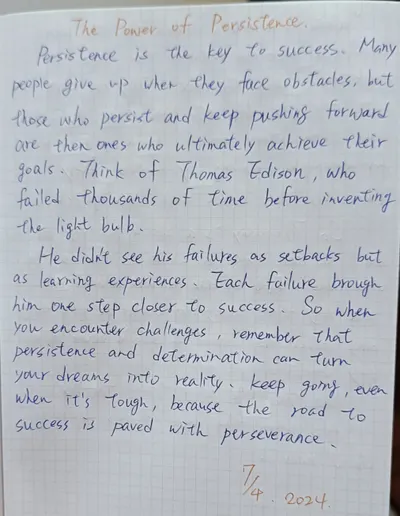 The Power of Persistence.
Persistence is the key to success. Many
people give up when they face obstacles, but
those who persist and keep pushing forward
are then ones who ultimately achieve their
goals. Think of Thomas Edison, who
failed thousands of time before inventing
the light bulb.
He didn't see his failures as setbacks but
as learning experiences. Each failure brough
him one step closer to success. So when
you encounter challenges, remember that
persistence and determination can turn
your dreams into reality. Keep going, even
when it's tough, because the road to
success is paved with perseverance.
7/4. 2024.